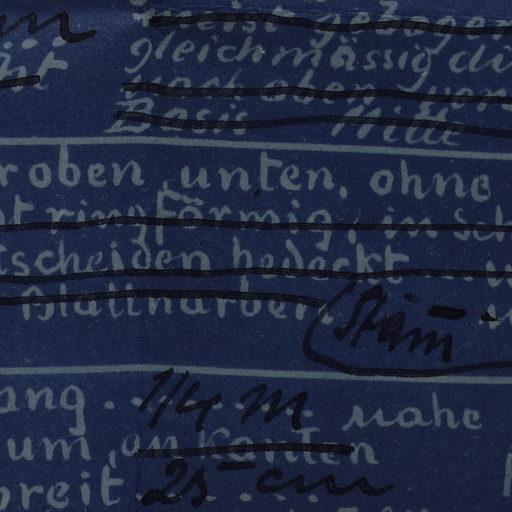 meist gebogen
gleichmässig di
nach oben von
Basis Mitte
r oben, unten, ohne
ringförmig, in Sch
tscheiden bedeckt
Blattnarben
ang . . . 1/4 m . . . nahe
um, an Kanten
breit . 25 cm . . .